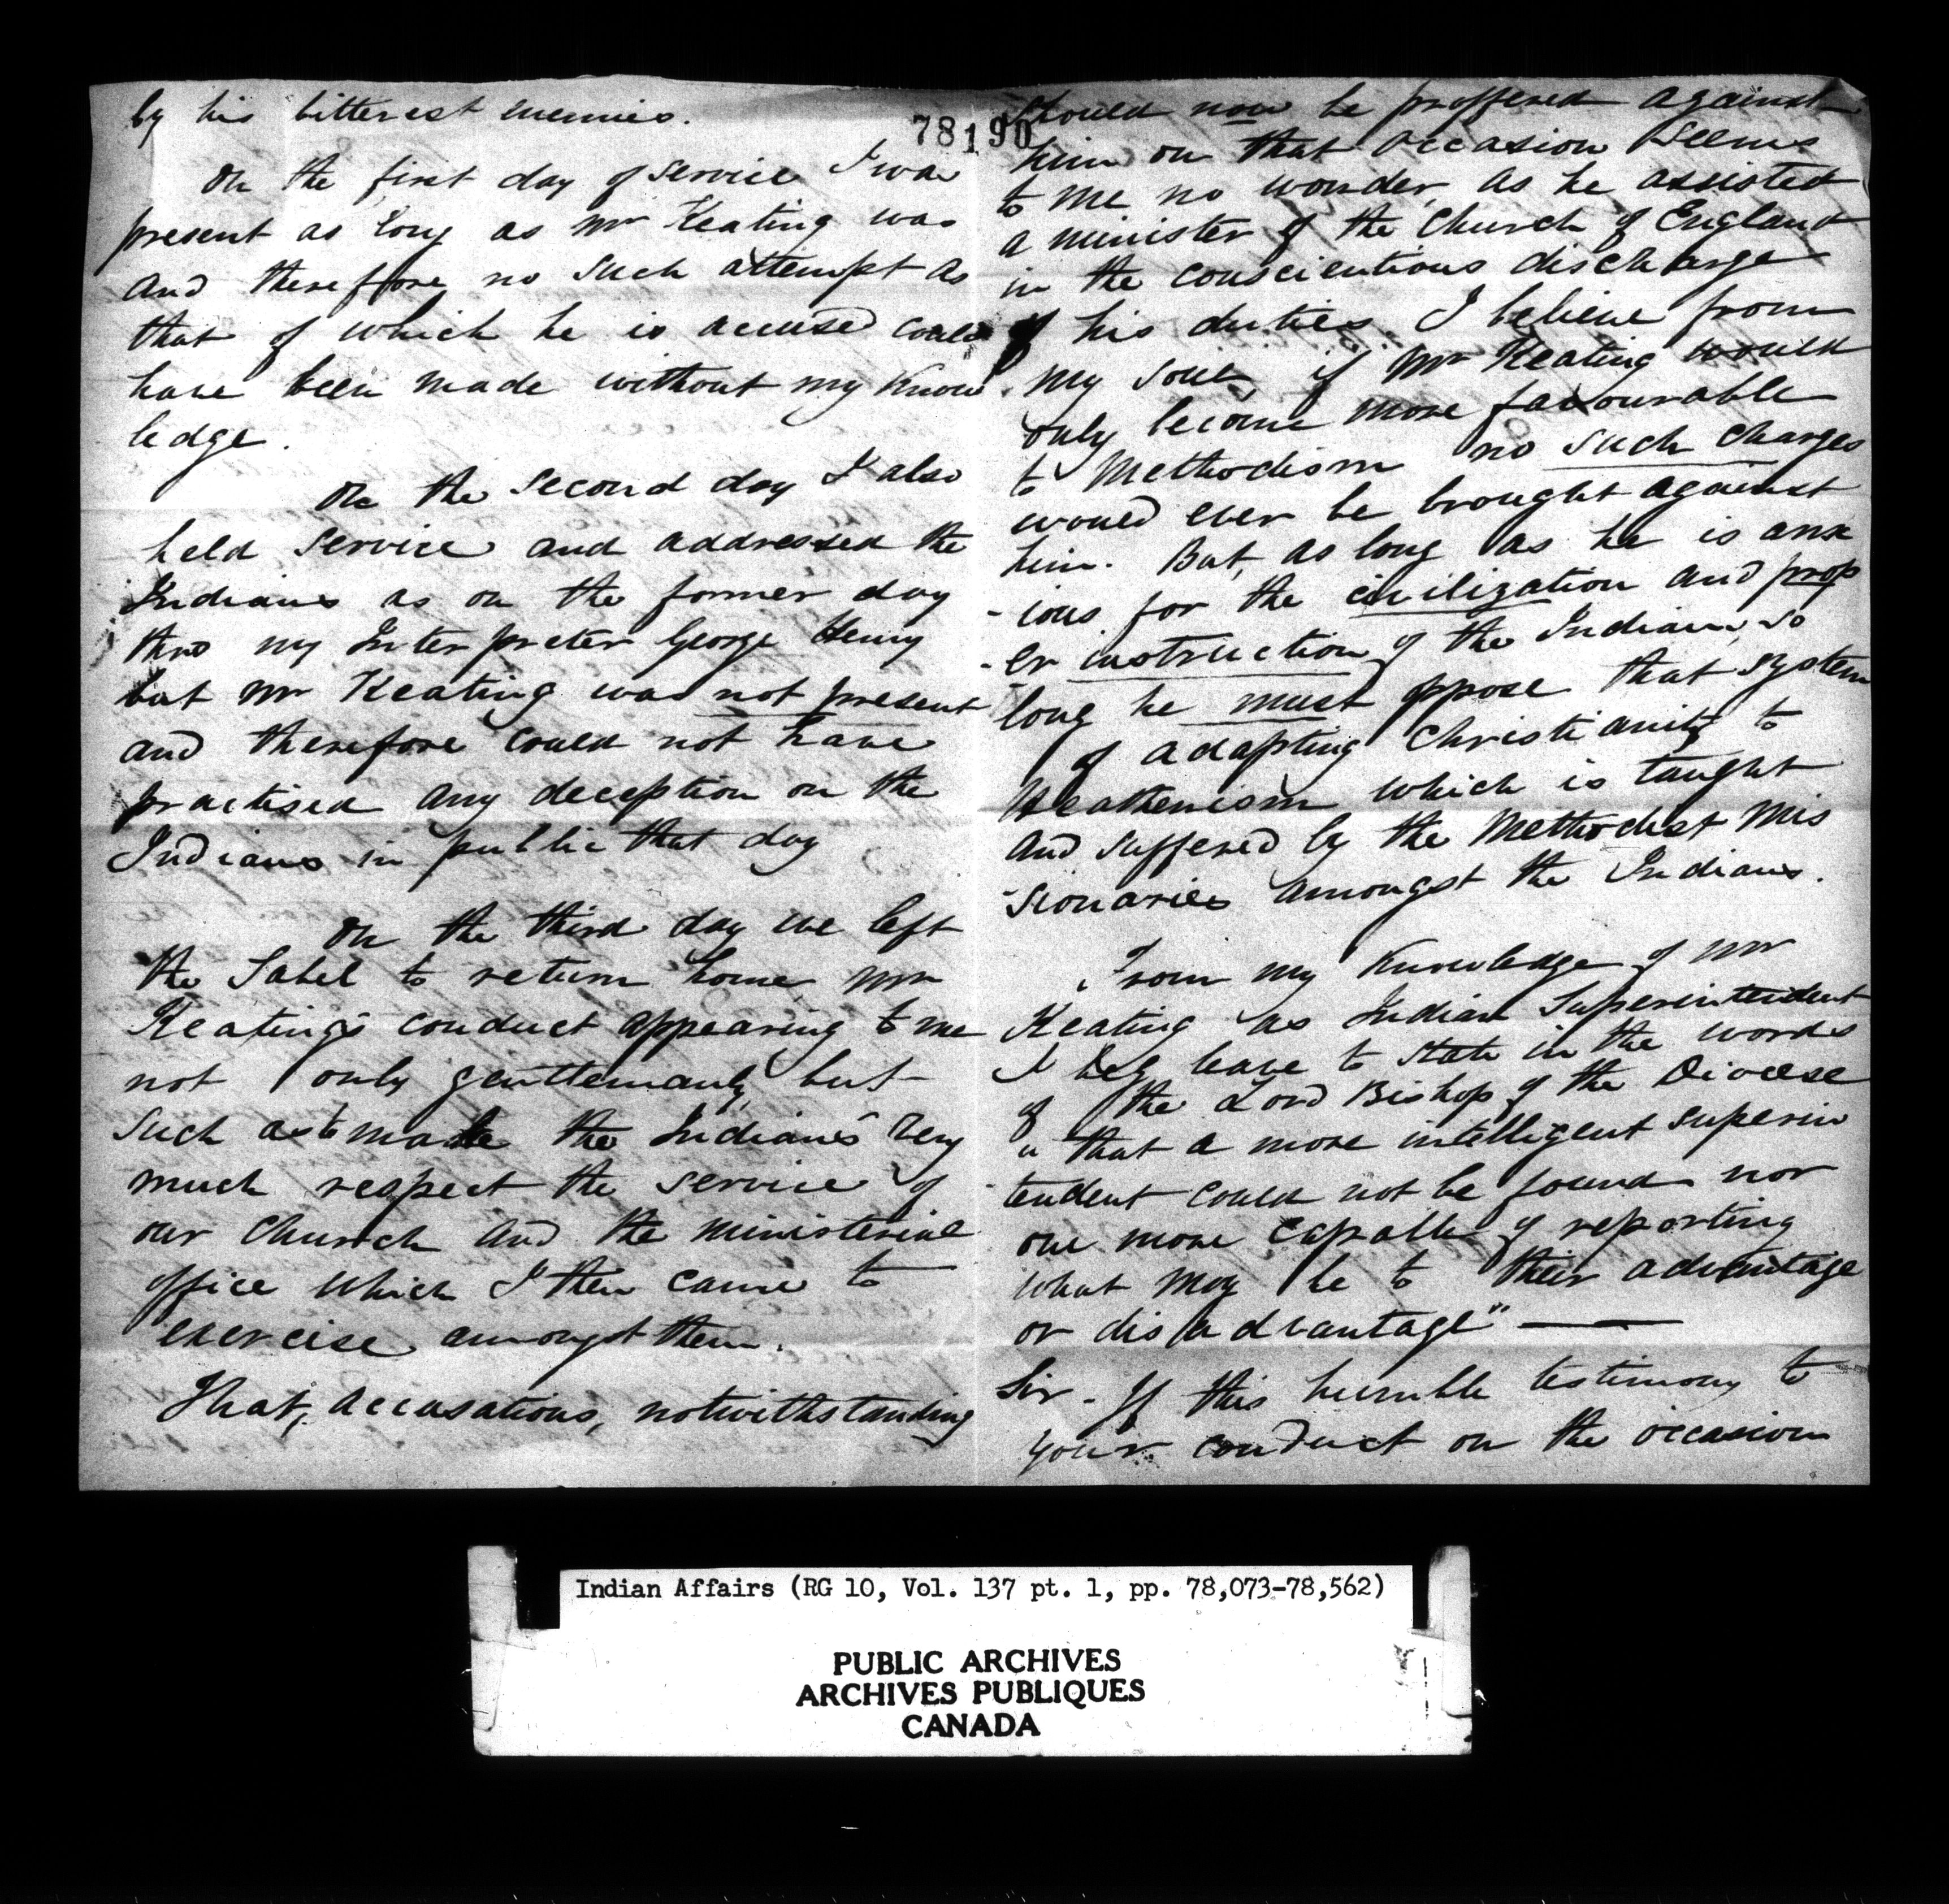 by his bitterest enemies.
On the first day of service I was
present as long as Mr Keating was
and therefore no such attempt as
that of which he is accused could
have been made without my know
ledge.
On the second day I also
held service and addressed the
Indians as on the former day
thro my Interpreter George Henry
but Mr Keating was not present
and therefore could not have
practised any deception on the
Indians in public that day
On the third day we left
the Sabel to return home, Mr
Keating's conduct appearing to me
not only gentlemanly but
such as to make the Indians very
much respect the service of
our Church and the ministerial
office which I then came to
exercise amongst them.
That, accusations, notwithstanding
78190
should now be proffered against
him on that occasion seems
to me no wonder, as he assisted
a minister of the Church of England
in the conscientious discharge
of his duties. I believe from
my soul, if Mr Keating would
only become more favourable
to Methodism no such charges
would ever be brought against
him. But, as long as he is anx
-ious for the civilization and prop
-er instruction of the Indians, so
long he must oppose that system
of adapting Christianity to
Heathenism which is taught
and suffered by the Methodist Mis
-sionaries amongst the Indians.
From my knowledge of Mr
Keating as Indian Superintendent
I beg leave to state in the words
of the Lord Bishop of the Diocese
" that a more intelligent superin
-tendent could not be found nor
one more capable of reporting
what may be to their advantage
or disadvantage" ———
Sir - If this humble testimony to
your conduct on the occasion
Indian Affairs (RG 10, Vol. 137 pt. 1, pp. 78,073-78,562)
PUBLIC ARCHIVES
ARCHIVES PUBLIQUES
CANADA